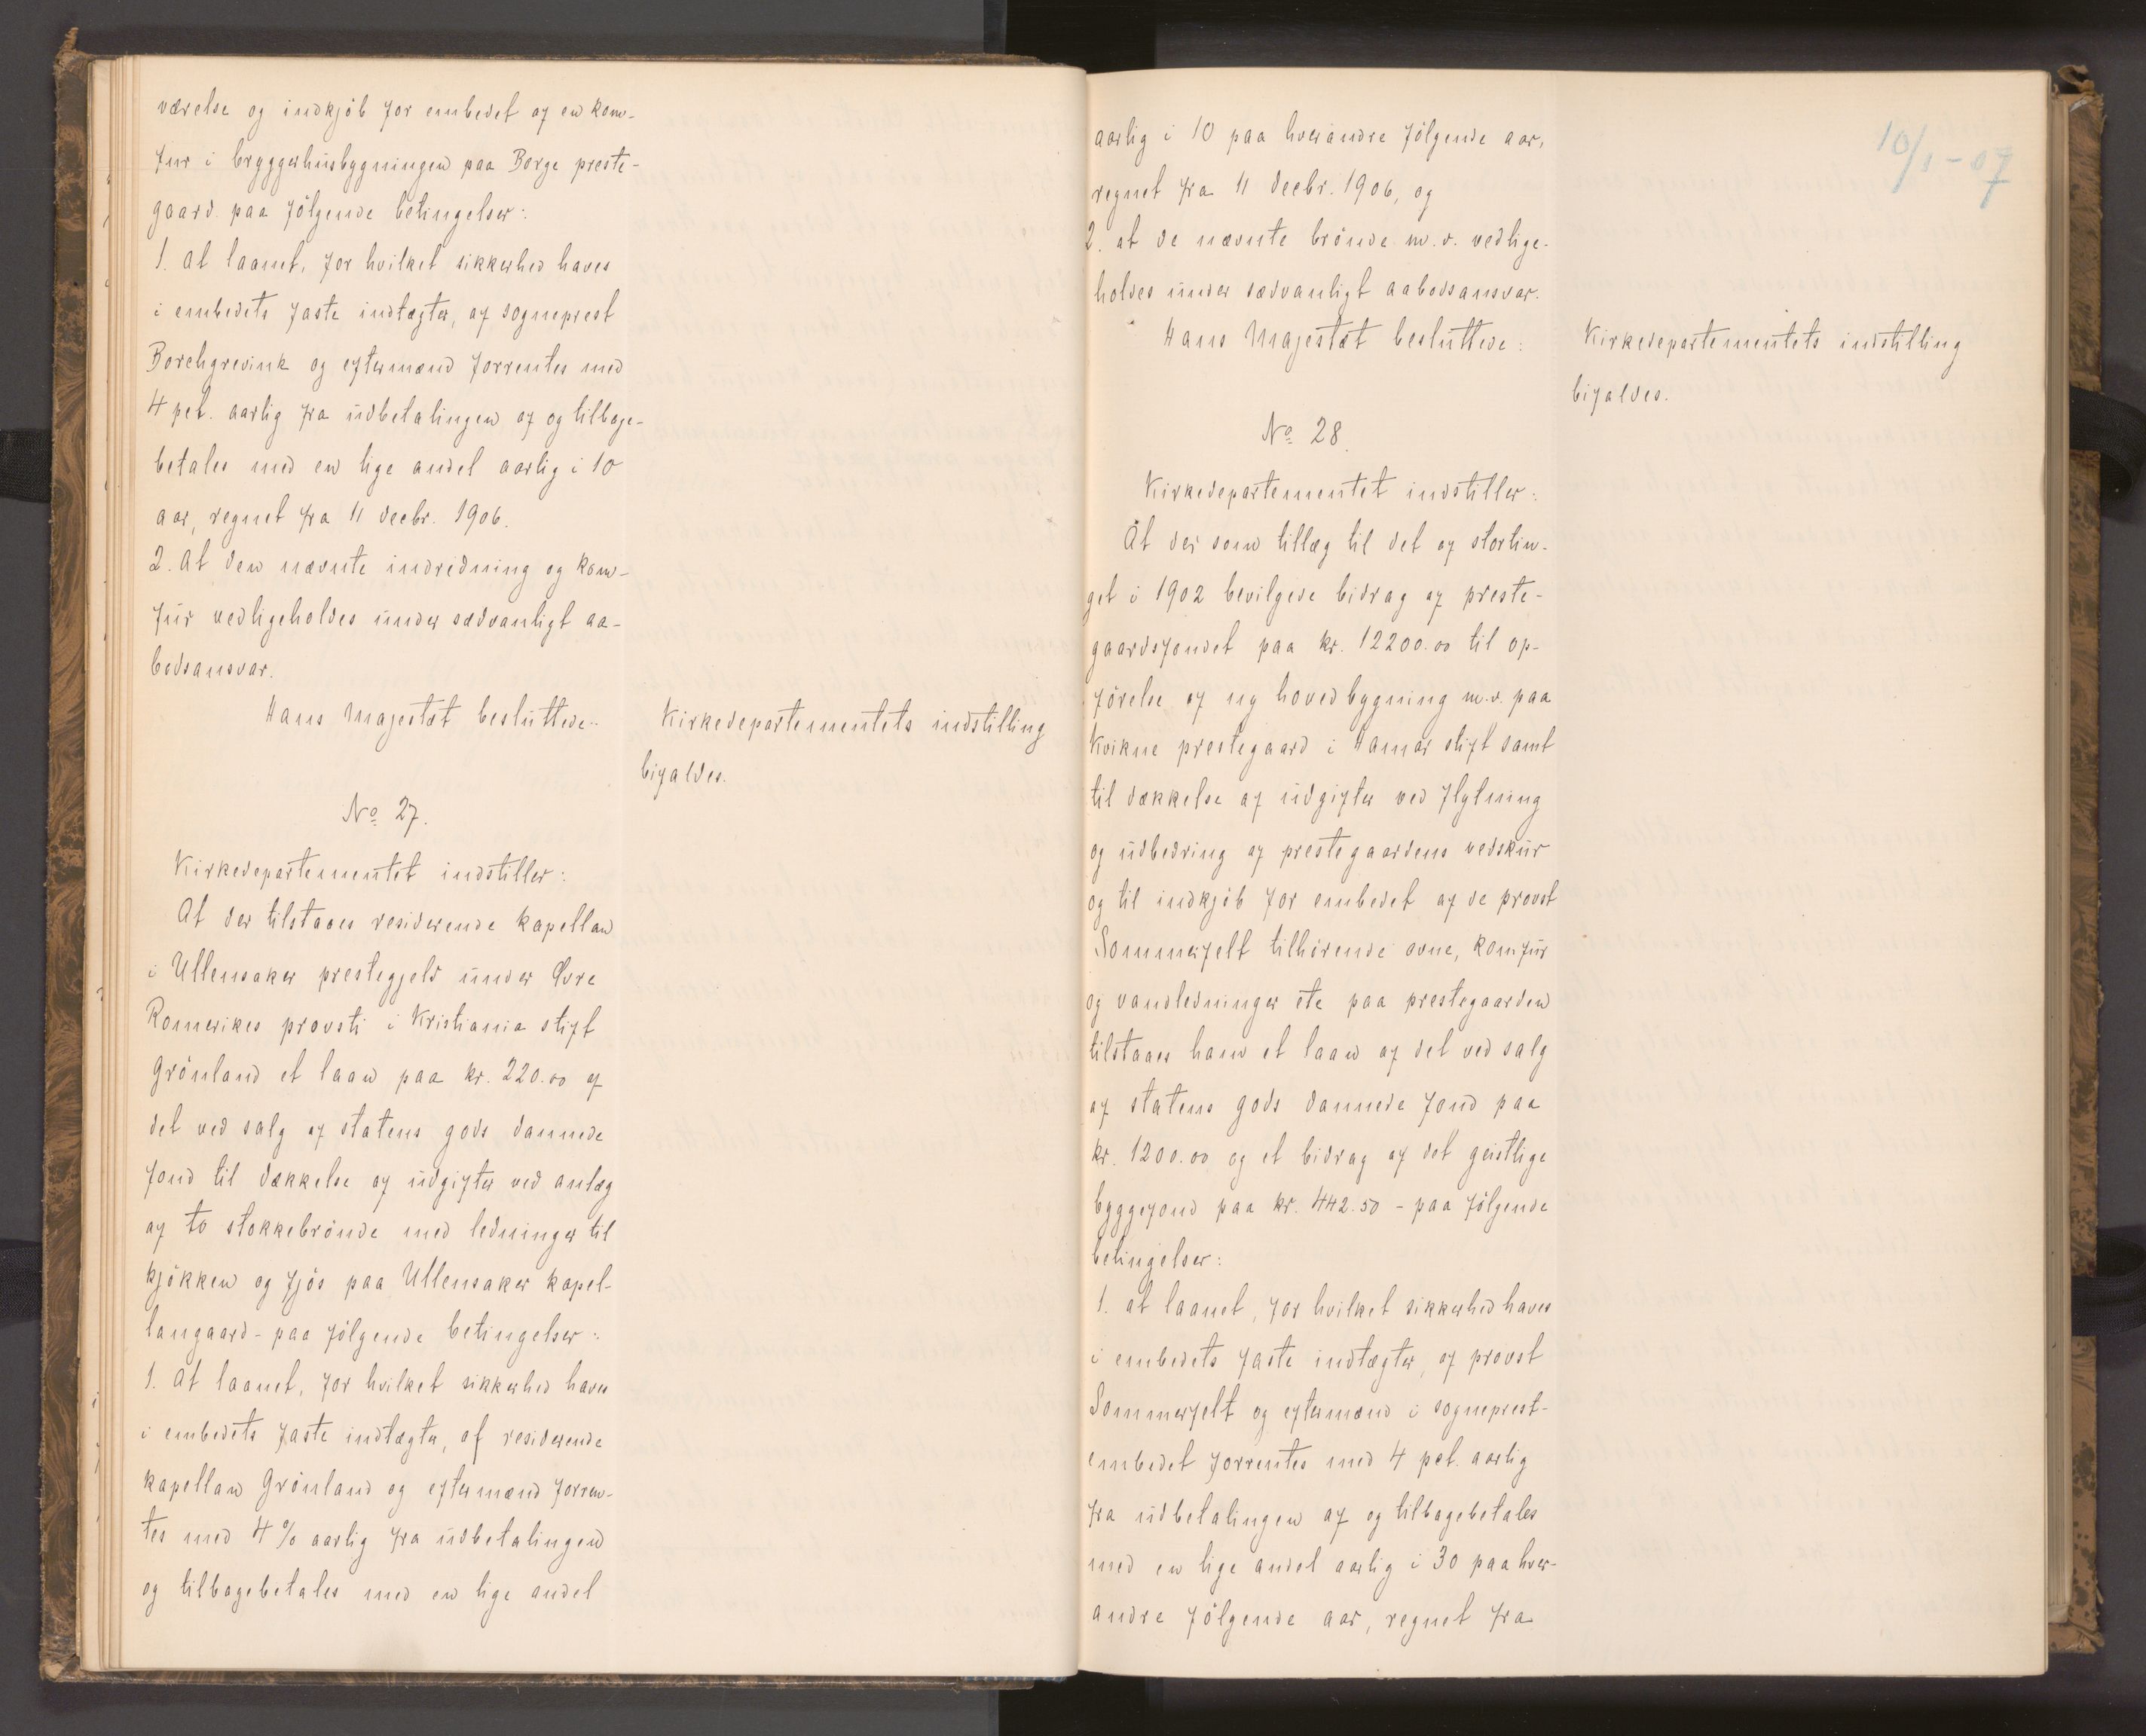 værelse og indkjöb for embedet af en kom-
fur i bryggerhusbygningen paa Borge preste-
gaard paa fölgende betingelser:
1. At laanet, for hvilket sikkerhed haves
i embedets faste indtægter, af sogneprest
Borchgrevink og eftermænd forrentes med
4 pct. aarlig fra udbetalingen af og tilbage-
betales med en lige andel aarlig i 10
aar, regnet fra 11 decbr. 1906.
2. At den nævnte indredning og kom-
fur vedligeholdes under sædvanligt aa-
bodsansvar.
Hans Majestæt besluttede:
Kirkedepartementets indstilling
bifaldes.
No 27.
Kirkedepartementet indstiller:
At der tilstaaes residerende kapellan
i Ullensaker prestegjeld under Övre
Romerikes provsti i Kristiania stift
Grönland et laan paa kr. 220.00 af
det ved salg af statens gods dannede
fond til dækkelse af udgifter ved anlæg
af to stokkebrönde med ledninger til
kjökken og fjös paa Ullensaker kapel-
langaard - paa fölgende betingelser:
1. At laanet, for hvilket sikkerhed haves
i embedets faste indtægter, af residerende
kapellan Grönland og eftermænd forren-
tes med 4 % aarlig fra udbetalingen
og tilbagebetales med en lige andel
10/1-07
aarlig i 10 paa hverandre fölgende aar,
regnet fra 11 decbr. 1906, og
2. at de nævnte brönde m.v. vedlige-
holdes under sædvanligt aabodsansvar.
Hans Majestæt besluttede:
Kirkedepartementets indstilling
bifaldes.
No 28.
Kirkedepartementet indstiller:
At der som tillæg til det af stortin-
get i 1902 bevilgede bidrag af preste-
gaardsfondet paa kr. 12200.00 til op-
förelse af ny hovedbygning m.v. paa
Kvikne prestegaard i Hamar stift samt
til dækkelse af udgifter ved flytning
og udbedring af prestegaardens vedskur
og til indkjöb for embedet af de provst
Sommerfelt tilhörende ovne, komfur
og vandledninger etc paa prestegaarden
tilstaaes ham et laan af det ved salg
af statens gods dannede fond paa
kr. 1200.00 og et bidrag af det geistlige
byggefond paa kr. 442.50 - paa fölgende
betingelser:
1. at laanet, for hvilket sikkerhed haves
i embedets faste indtægter, af provst
Sommerfelt og eftermænd i sogneprest-
embedet forrentes med 4 pct. aarlig
fra udbetalingen af og tilbagebetales
med en lige andel aarlig i 30 paa hver-
andre fölgende aar, regnet fra